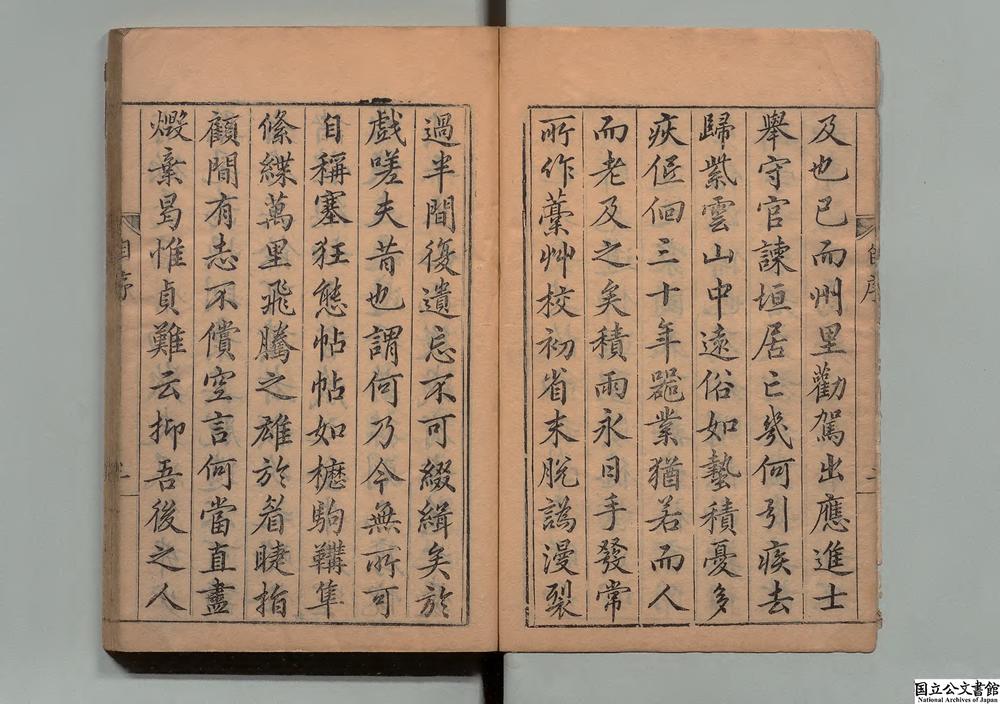 及也已而州里勸駕出應進士
舉守官諫垣居亡幾何引疾去
歸紫雲山中遠俗如藝積憂多
疾低佪三十年罷業猶若而人
而老及之矣積雨永日手發常
所作藳艸校初省末脫譌漫裂
過半間復遺忘不可綴緝矣於
戲嗟夫昔也謂何乃今無所可
自稱塞狂態帖帖如櫪駒韝隼
絛緤萬里飛騰之雄於着睫指
顧間有志不償空言何當直盡
燬棄曷惟貞難云抑吾後之人
自序
国立公文書館
National Archives of Japan